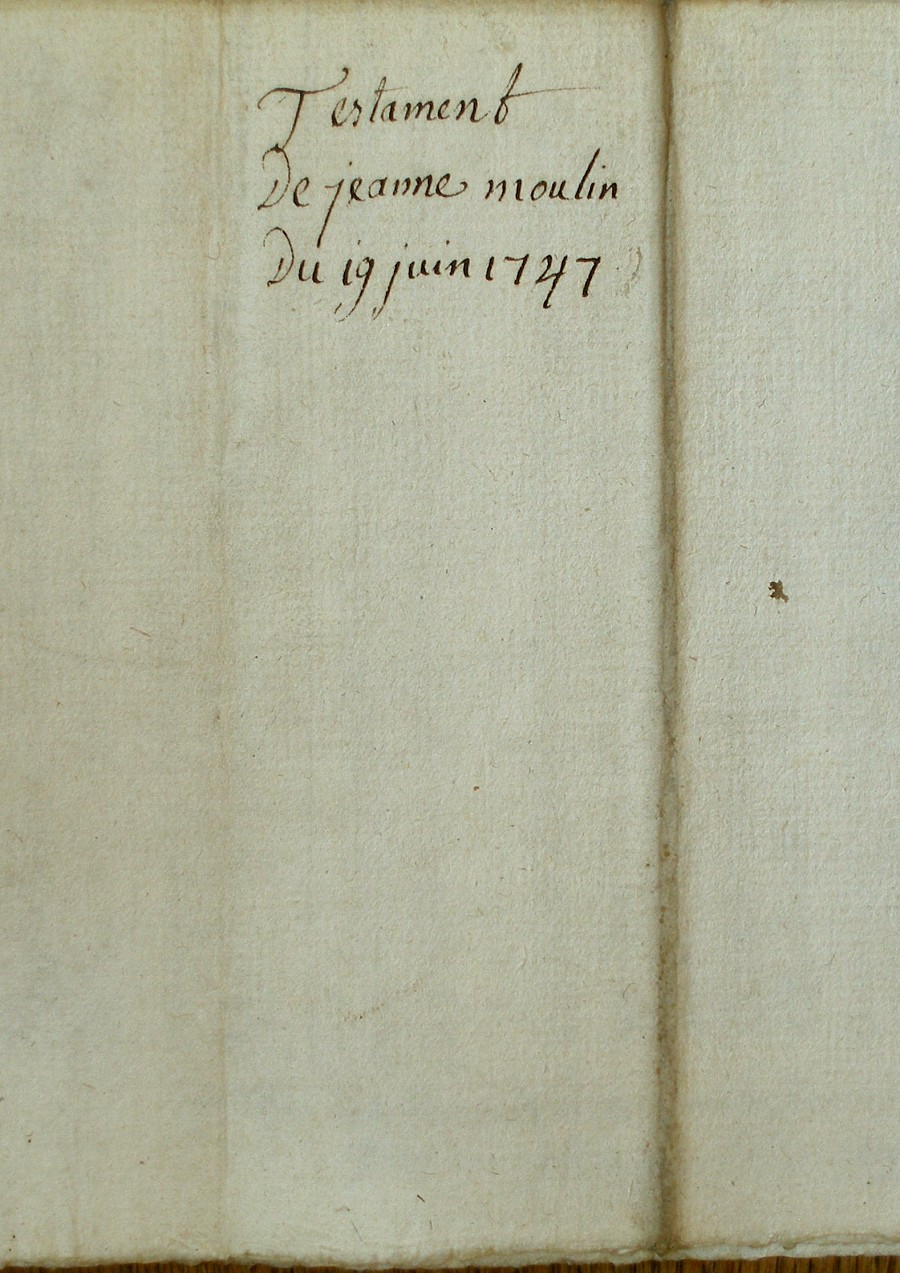 Testament
De jeanne moulin
Du 19 juin 1747